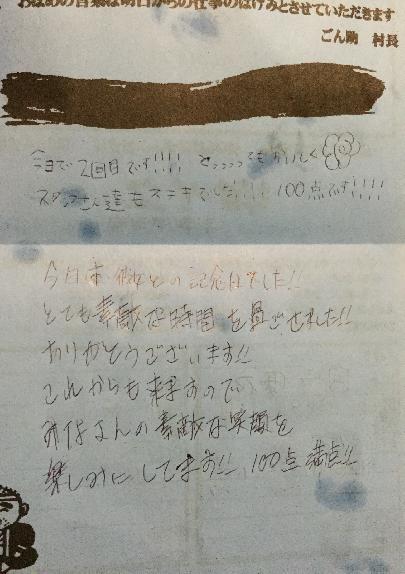 おほめの言葉は明日からの仕事のはげみとさせていただきます
ごん助 村長
今日で2回目です!!!! とっっってもおいしく
スタッフさん達もステキでした!!!! 100点です!!!!
今日は彼女との記念日でした!!
とても素敵な時間を過ごせました!!
ありがとうございます!!
これからも来ますので
みなさんの素敵な笑顔を
楽しみにしてます!! 100点満点!!